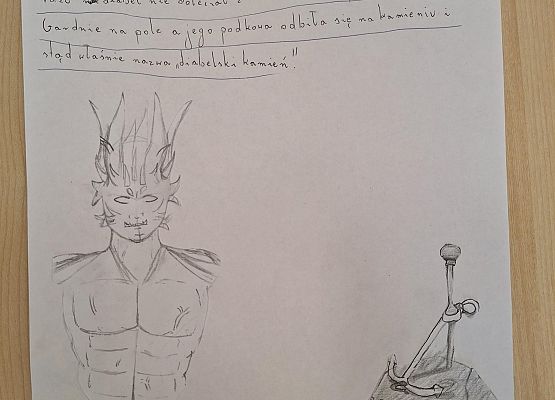 diabeł nie doleciał z
Gardnie na pole a jego podkowa odbiła się na kamieniu i
stąd właśnie nazwa „diabelski kamień".